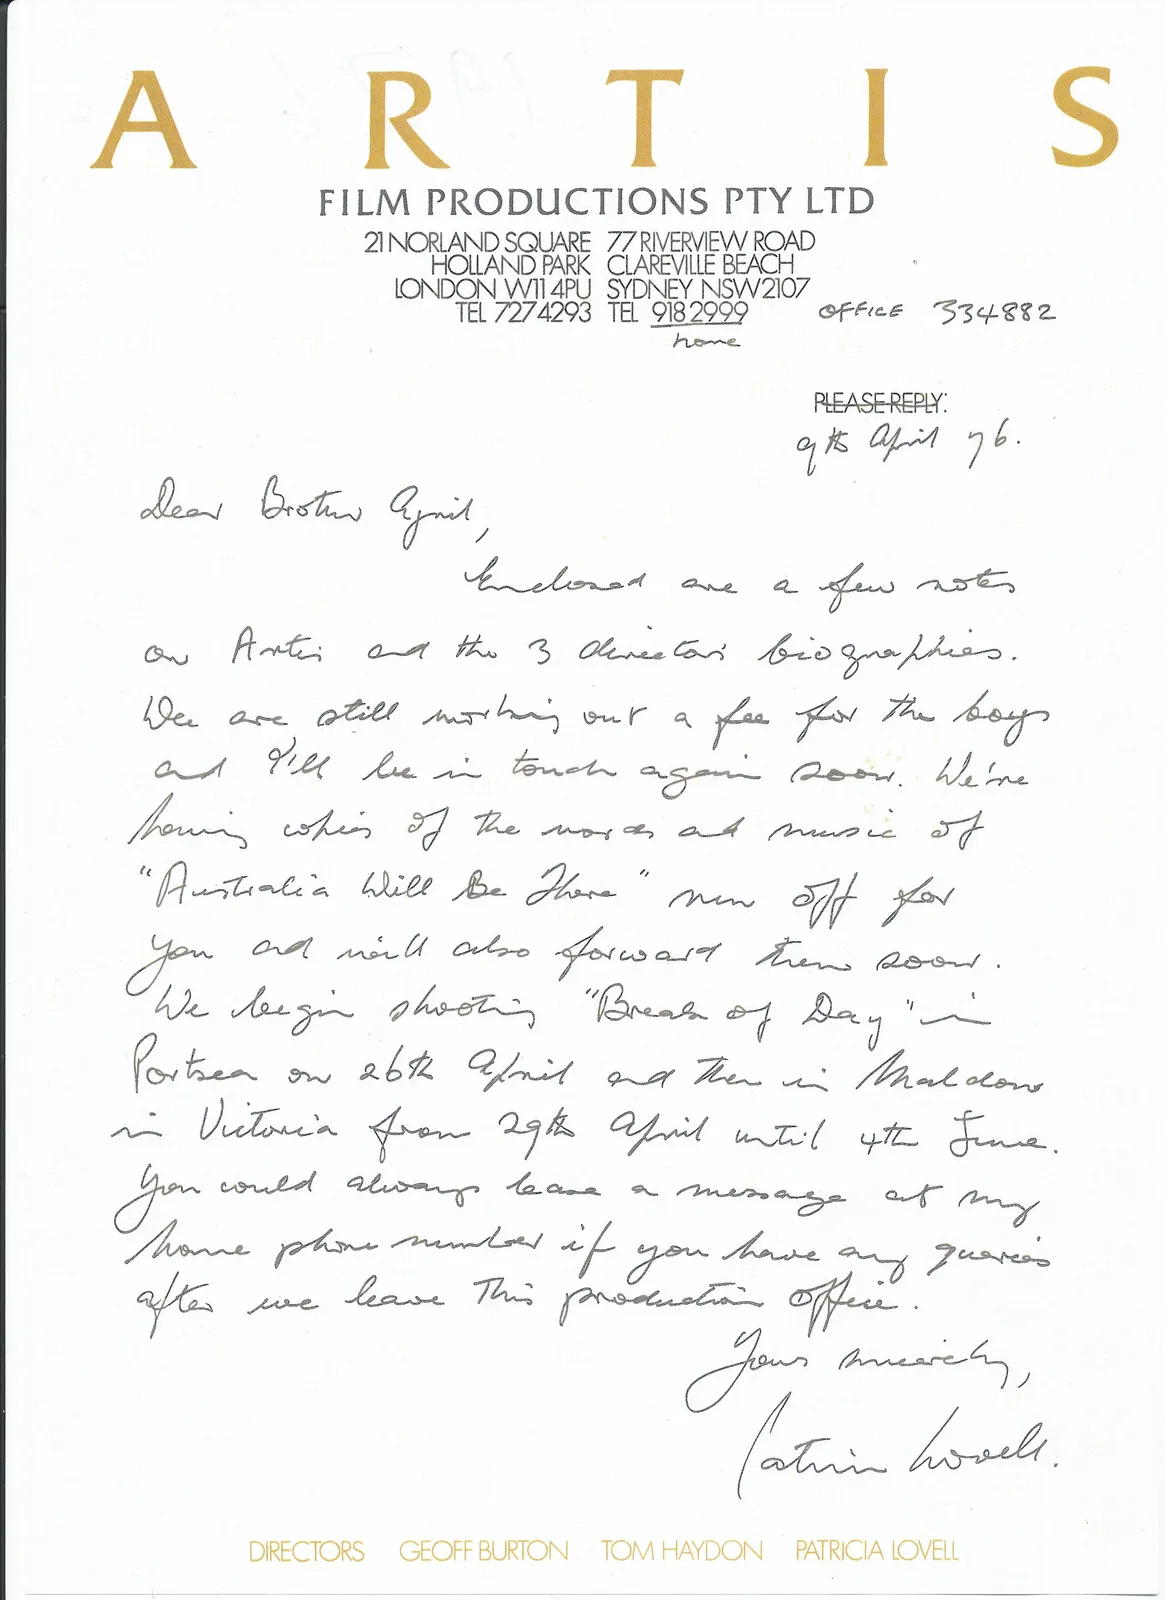 ARTIS
FILM PRODUCTIONS PTY LTD
21 NORLAND SQUARE 77 RIVERVIEW ROAD
HOLLAND PARK CLAREVILLE BEACH
LONDON W11 4PU SYDNEY NSW 2107
TEL 727 4293 TEL 918 2999 OFFICE 334882
home
PLEASE REPLY:
9th April 76.
Dear Brother April,
Enclosed are a few notes
on Artis and the 3 directors biographies.
We are still working out a fee for the boys
and I'll be in touch again soon. We're
having copies of the words and music of
"Australia Will Be There" run off for
you and we'll also forward them soon.
We begin shooting "Break of Day" in
Portsea on 26th April and then in Maldon
in Victoria from 29th April until 4th June.
You could always leave a message at my
home phone number if you have any queries
after we leave this production office.
Yours sincerely,
Patricia Lovell.
DIRECTORS GEOFF BURTON TOM HAYDON PATRICIA LOVELL